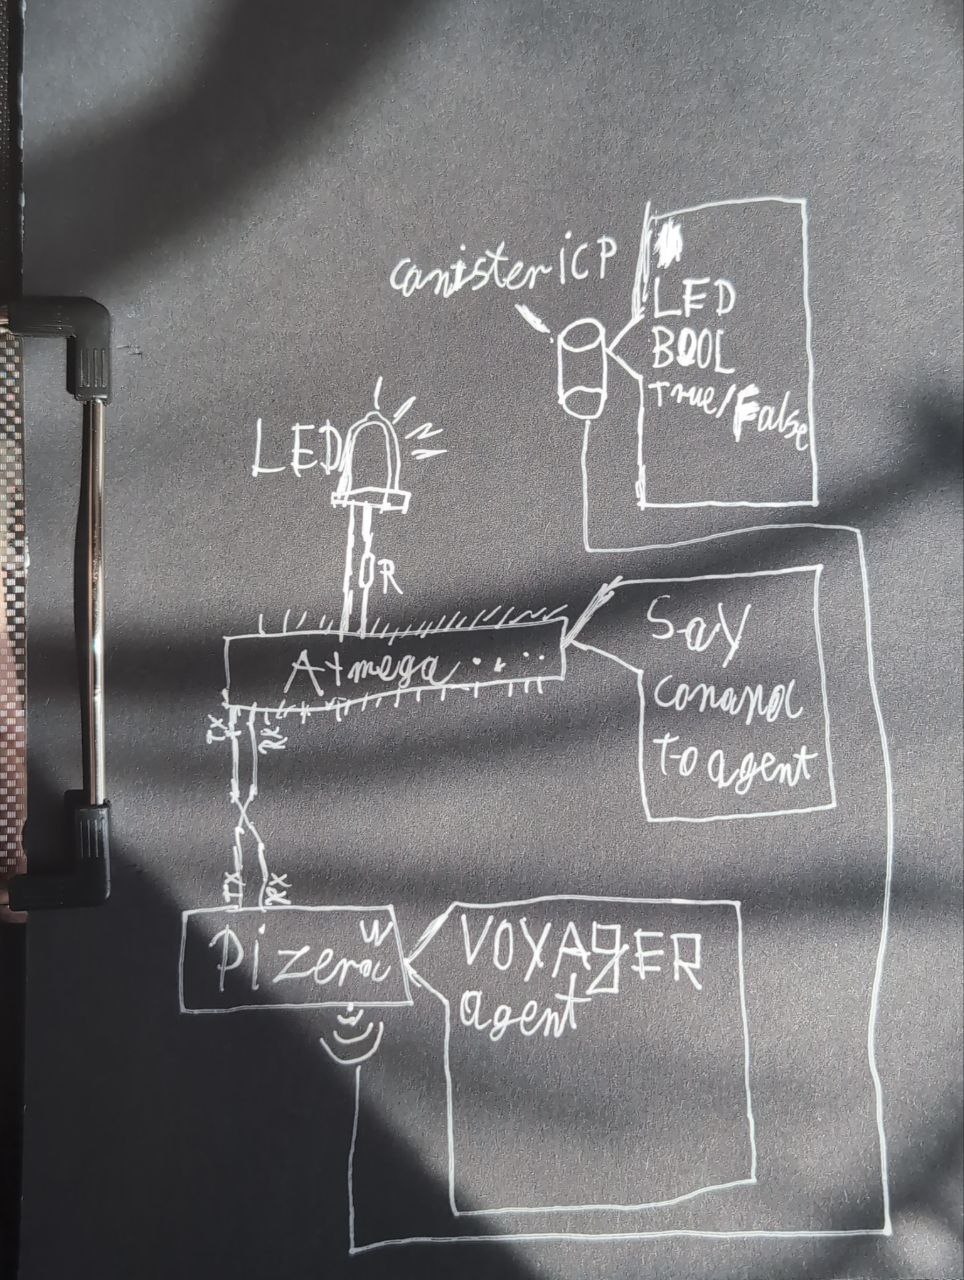 canister iCP
LED
BOOL
True/False
LED
R
Atmega....
Say
comand
to agent
TX
RX
TX
RX
Pi zero
W
VOYAgER
agent